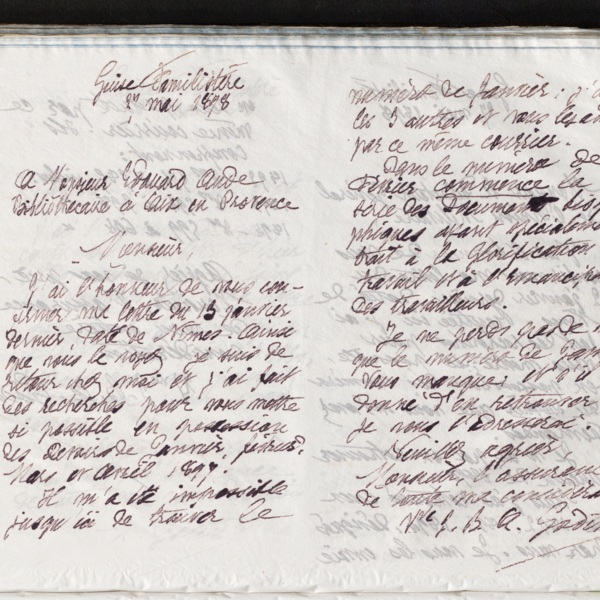 Guise Familistère
mai 1898
A Monsieur Edouard Aude
Bibliothécaire à Aix en Provence
Monsieur,
J'ai l'honneur de vous con-
firmer ma lettre du 13 janvier
dernier, datée de Nîmes. Ainsi
que vous le voyez je suis de
retour chez moi et j'ai fait
des recherches pour vous mettre
si possible en possession
des Devoirs de Janvier, février,
Mars et Avril 1897.
Il m'a été impossible
jusqu'ici de trouver le
numéro de Janvier; j'ai
les 3 autres et vous les
par ce même courrier.
Dans le numéro de
février commence la
série des Documents
phiques ayant spécialement
trait à la glorification
travail et à l'émancipa
des travailleurs.
Je ne perds pas de
que le numéro de Janv
vous manque; et s'il
donné d'en retrouver
je vous l'adresserai.
Veuillez agréer,
Monsieur, l'assurance
de toute ma considéra
Vve J. B. A. Godin